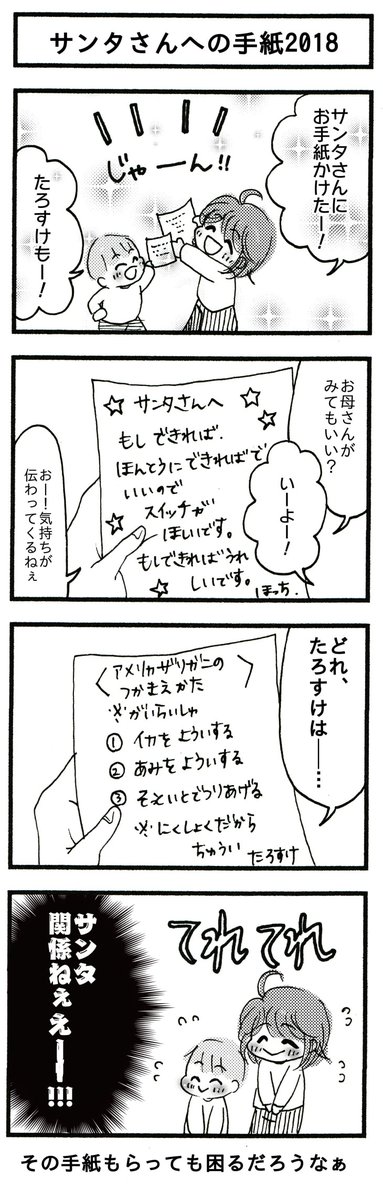 サンタさんへの手紙2018
サンタさんに
お手紙かけたー!
じゃーん!!
たろすけもー!
お母さんが
みてもいい?
いーよー!
☆サンタさんへ☆
もしできれば、
ほんとうにできればで
いいので
スイッチが
ほしいです。
もしできればうれ
しいです。
ほっち.
おー!気持ちが
伝わってくるねぇ
どれ、
たろすけは——…
〈アメリカザリガニの
つかまえかた〉
※がいらいしゅ
①イカをよういする
②あみをよういする
③そぉいとでつりあげる
※にくしょくだから
ちゅうい
たろすけ
てれてれ
サンタ
関係ねぇえーー!!!
その手紙もらっても困るだろうなぁ